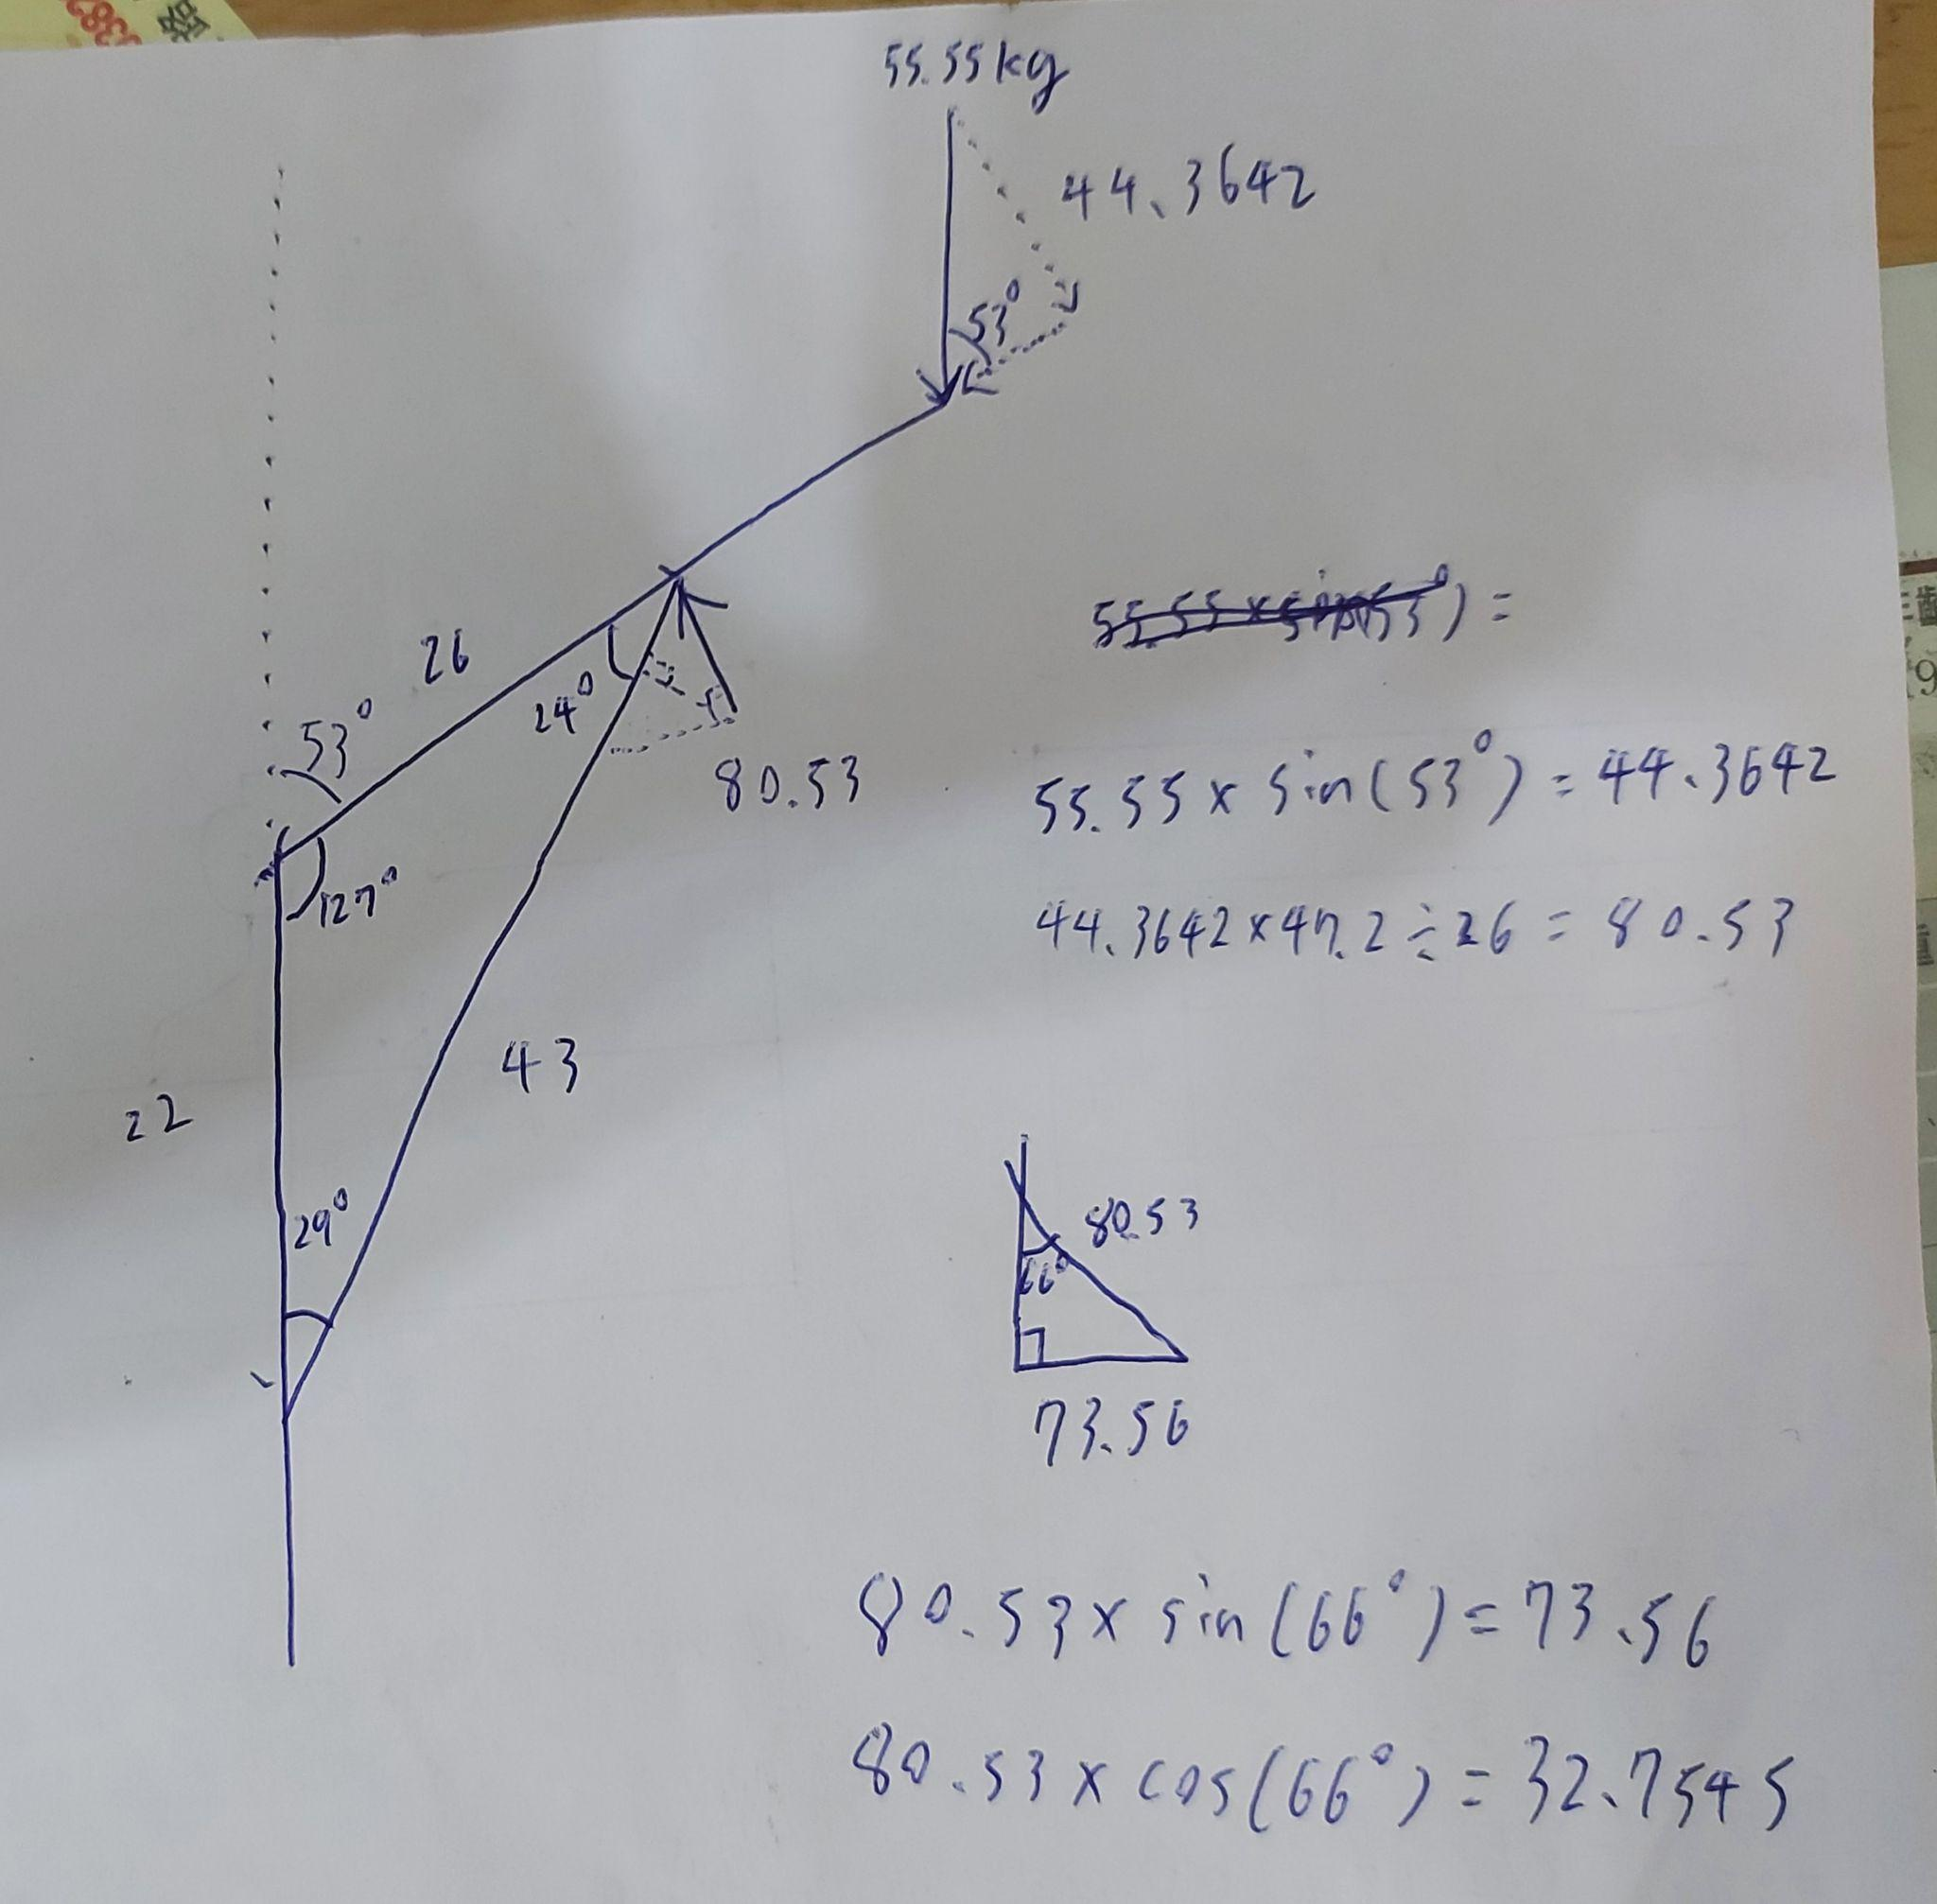 55.55kg
44.3642
53°
26
53°
24°
80.53
127°
43
22
29°
55.55 x sin(53°) =
55.55 x sin(53°) = 44.3642
44.3642 x 47.2 ÷ 26 = 80.53
80.53
66°
73.56
80.53 x sin(66°) = 73.56
80.53 x cos(66°) = 32.7545